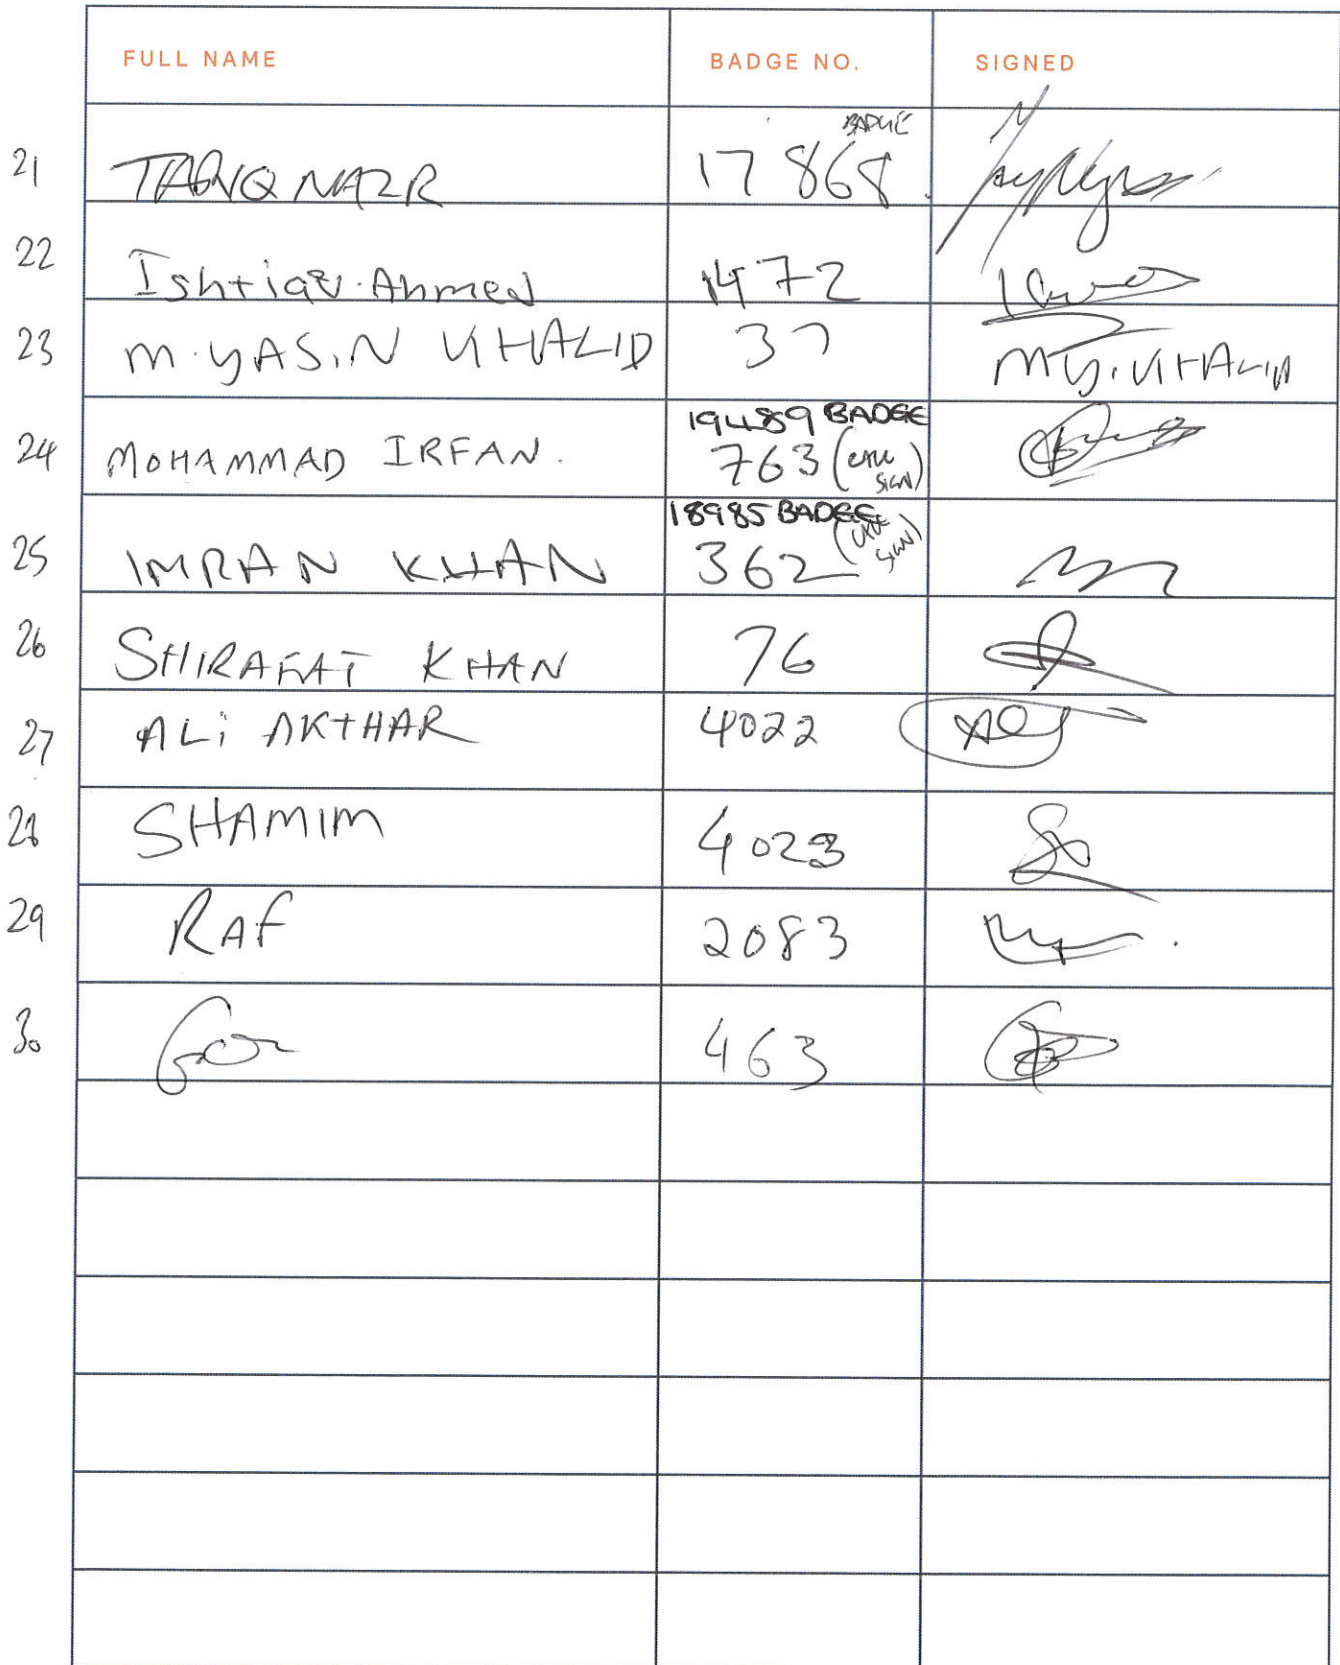 FULL NAME BADGE NO. SIGNED
21 TARIQ NAZR 17868 BADGE
22 Ishtiaq. Ahmed 1472
23 M. YASIN KHALID 37 M Y. KHALID
24 MOHAMMAD IRFAN. 19489 BADGE
763 (CALL SIGN)
25 IMRAN KHAN 18985 BADGE
362 (CALL SIGN)
26 SHIRAFAT KHAN 76
27 ALi AKTHAR 4022
28 SHAMIM 4023
29 RAF 2083
30 463